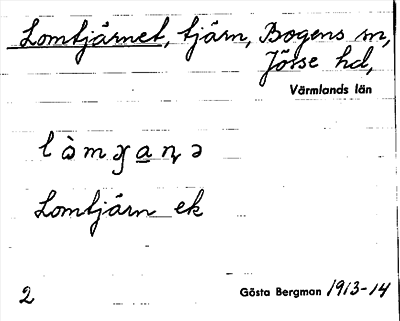 Lomtjärnet, tjärn, Bogens sn,
Jösse hd,
Värmlands län
Lomtjärn ek
2
Gösta Bergman 1913-14